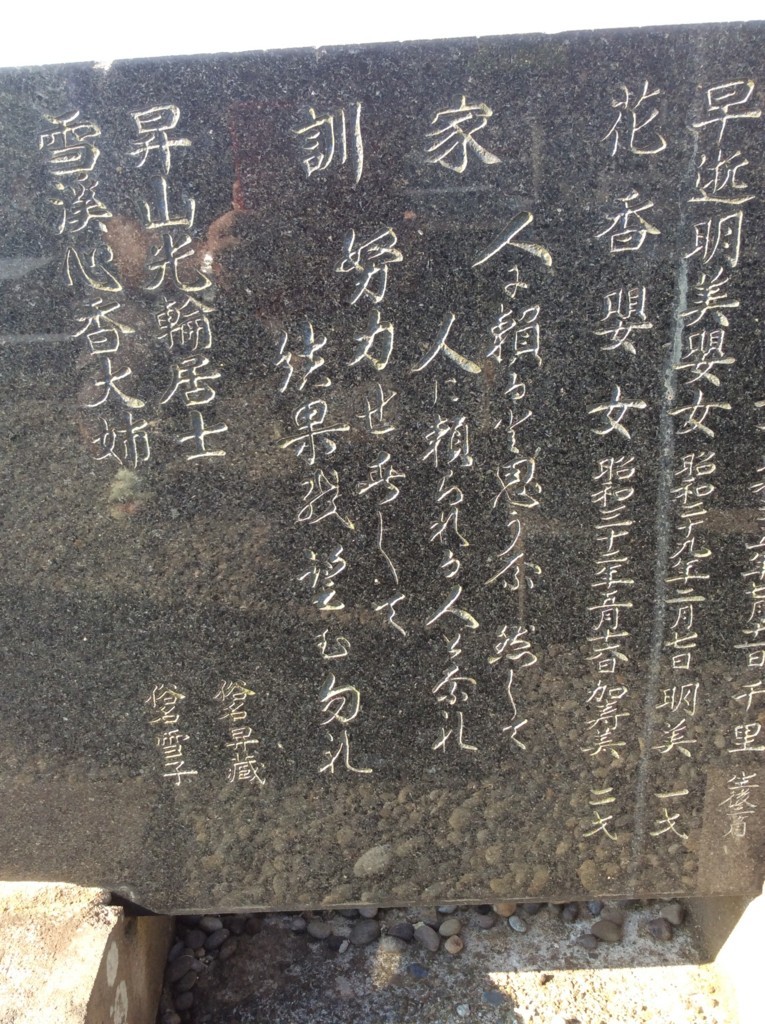 千里 生後
早逝明美嬰女 昭和二十九年二月七日 明美 一才
花香嬰女 昭和三十二年五月十六日 加寿美 二才
家訓
人に頼る出思う奈 然して
人に頼られる人と奈れ
努力せ
結果
望む勿れ
昇山光輪居士 俗名 昇藏
雪溪心香大姉 俗名 雪子